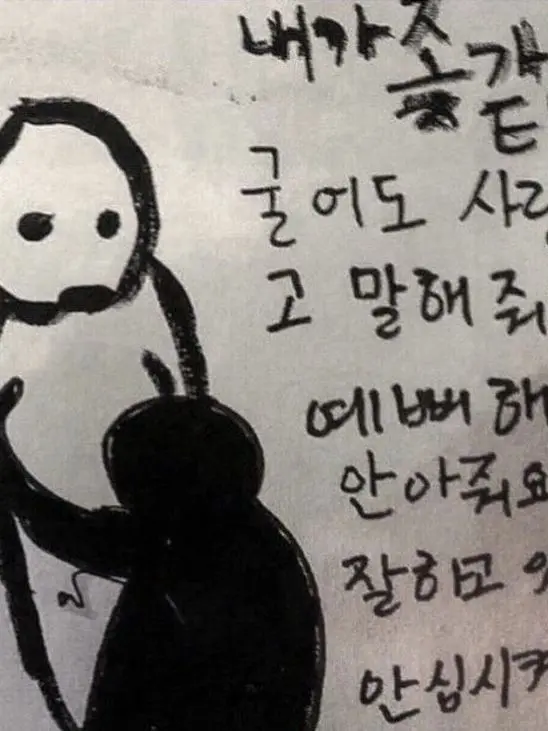 내가 좆같
굴어도 사랑
고 말해줘
예뻐해
안아줘요
잘하고
안심시켜